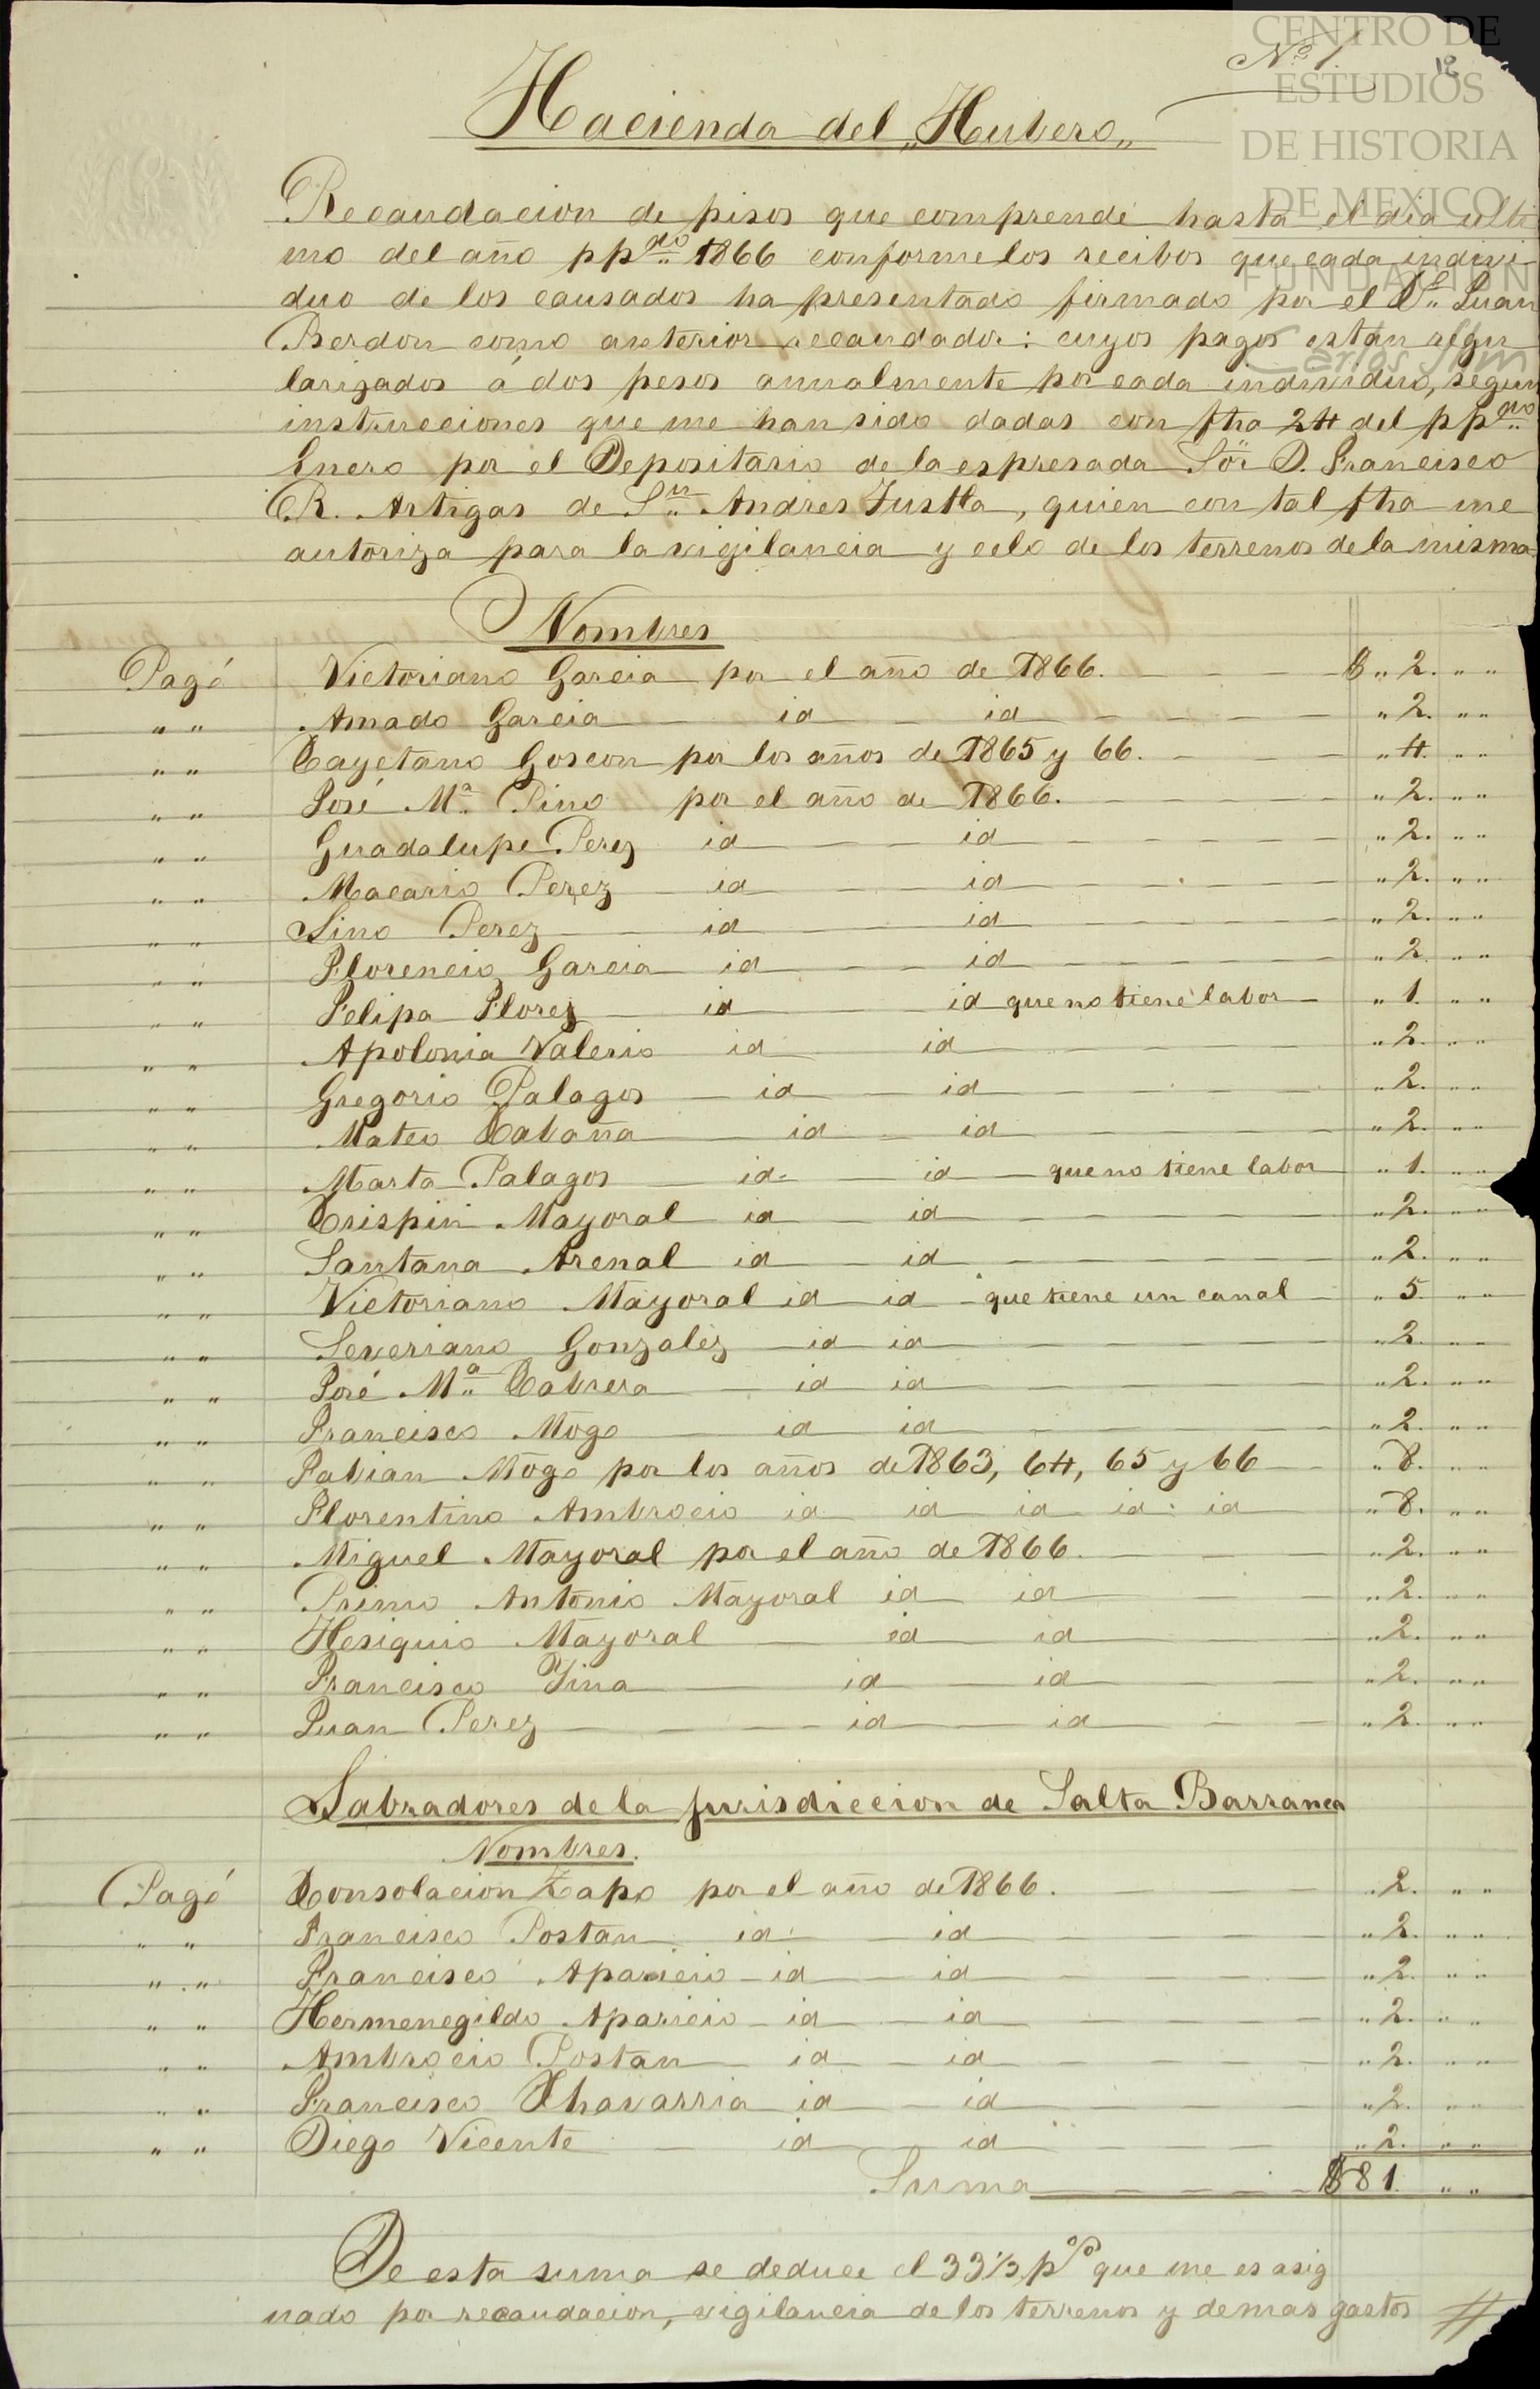 CENTRO DE
ESTUDIOS
DE HISTORIA
DE MEXICO
FUNDACIÓN
Carlos Slim
Nº 1 12
Hacienda del „Hubero„
Recaudacion de pisos que comprende hasta el dia ulti
mo del año ppdo 1866 conforme los recibos que cada indivi-
duo de los causados ha presentado firmado por el Juan
Berdon como anterior recaudador: cuyos pagos están regu
larizados á dos pesos anualmente por cada individuo, segun
instrucciones que me han sido dadas con fha 24 del ppdo
Enero por el Depositario de la espresada Sor D. Francisco
R. Artigas de Sn Andres Tustla, quien con tal fha me
autoriza para la vigilancia y celo de los terrenos de la misma
Nombres
Pagó Victoriano Garcia por el año de 1866. $ „ 2. „ „
„ „ Amado Garcia id id „ 2. „ „
„ „ Cayetano Goscon por los años de 1865 y 66. „ 4. „ „
„ „ José Ma Pino por el año de 1866. „ 2. „ „
„ „ Guadalupe Perez id id „ 2. „ „
„ „ Macario Perez id id „ 2. „ „
„ „ Lino Perez id id „ 2. „ „
„ „ Florencio Garcia id id „ 2. „ „
„ „ Felipa Florez id id que no tiene labor „ 1. „ „
„ „ Apolonia Valerio id id „ 2. „ „
„ „ Gregorio Palagos id id „ 2. „ „
„ „ Mateo Cabaña id id „ 2. „ „
„ „ Marta Palagos id. id que no tiene labor „ 1. „ „
„ „ Crispin Mayoral id id „ 2. „ „
„ „ Santana Arenal id id „ 2. „ „
„ „ Victoriano Mayoral id id que tiene un canal „ 5. „ „
„ „ Severiano Gonzalez id id „ 2. „ „
„ „ José Ma Cabrera id id „ 2. „ „
„ „ Francisco Mogo id id „ 2. „ „
„ „ Fabian Mogo por los años de 1863, 64, 65 y 66 „ 8. „ „
„ „ Florentino Ambrocio id id id id id „ 8. „ „
„ „ Miguel Mayoral por el año de 1866. „ 2. „ „
„ „ Primo Antonio Mayoral id id „ 2. „ „
„ „ Hesiquio Mayoral id id „ 2. „ „
„ „ Francisco id id „ 2. „ „
„ „ Juan Perez id id „ 2. „ „
Labradores de la jurisdiccion de Salta Barranca
Nombres.
Pagó Consolacion Zapo por el año de 1866. „ 2. „ „
„ „ Francisco Postan id id „ 2. „ „
„ „ Francisco Aparicio id id „ 2. „ „
„ „ Hermenegildo Aparicio id id „ 2. „ „
„ „ Ambrocio Postan id id „ 2. „ „
„ „ Francisco Chavarria id id „ 2. „ „
„ „ Diego Vicente id id „ 2. „ „
Suma $ 81. „ „
De esta suma se deduce el 33⅓ p% que me es asig
nado por recaudacion, vigilancia de los terrenos y demas gastos //